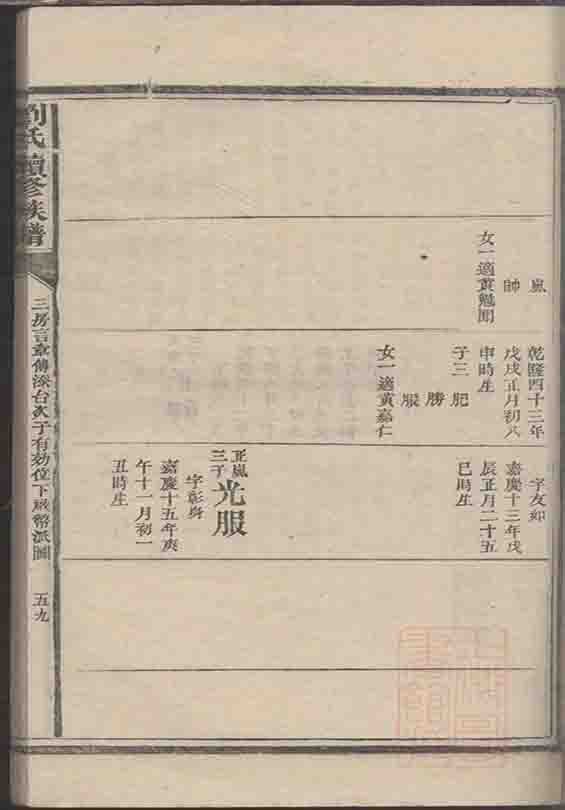 劉氏續修族譜
三房言章傳深台次子有効位下
派圖
五九
嵐
帥
女一適黃魁聞
乾隆四十三年
戊戌正月初八
申時生
子三 肥
勝
服
女一適黃嘉仁
字友
嘉慶十三年戊
辰正月二十五
巳時生
正嵐
三子
光服
字彰身
嘉慶十五年庚
午十一月初一
丑時生